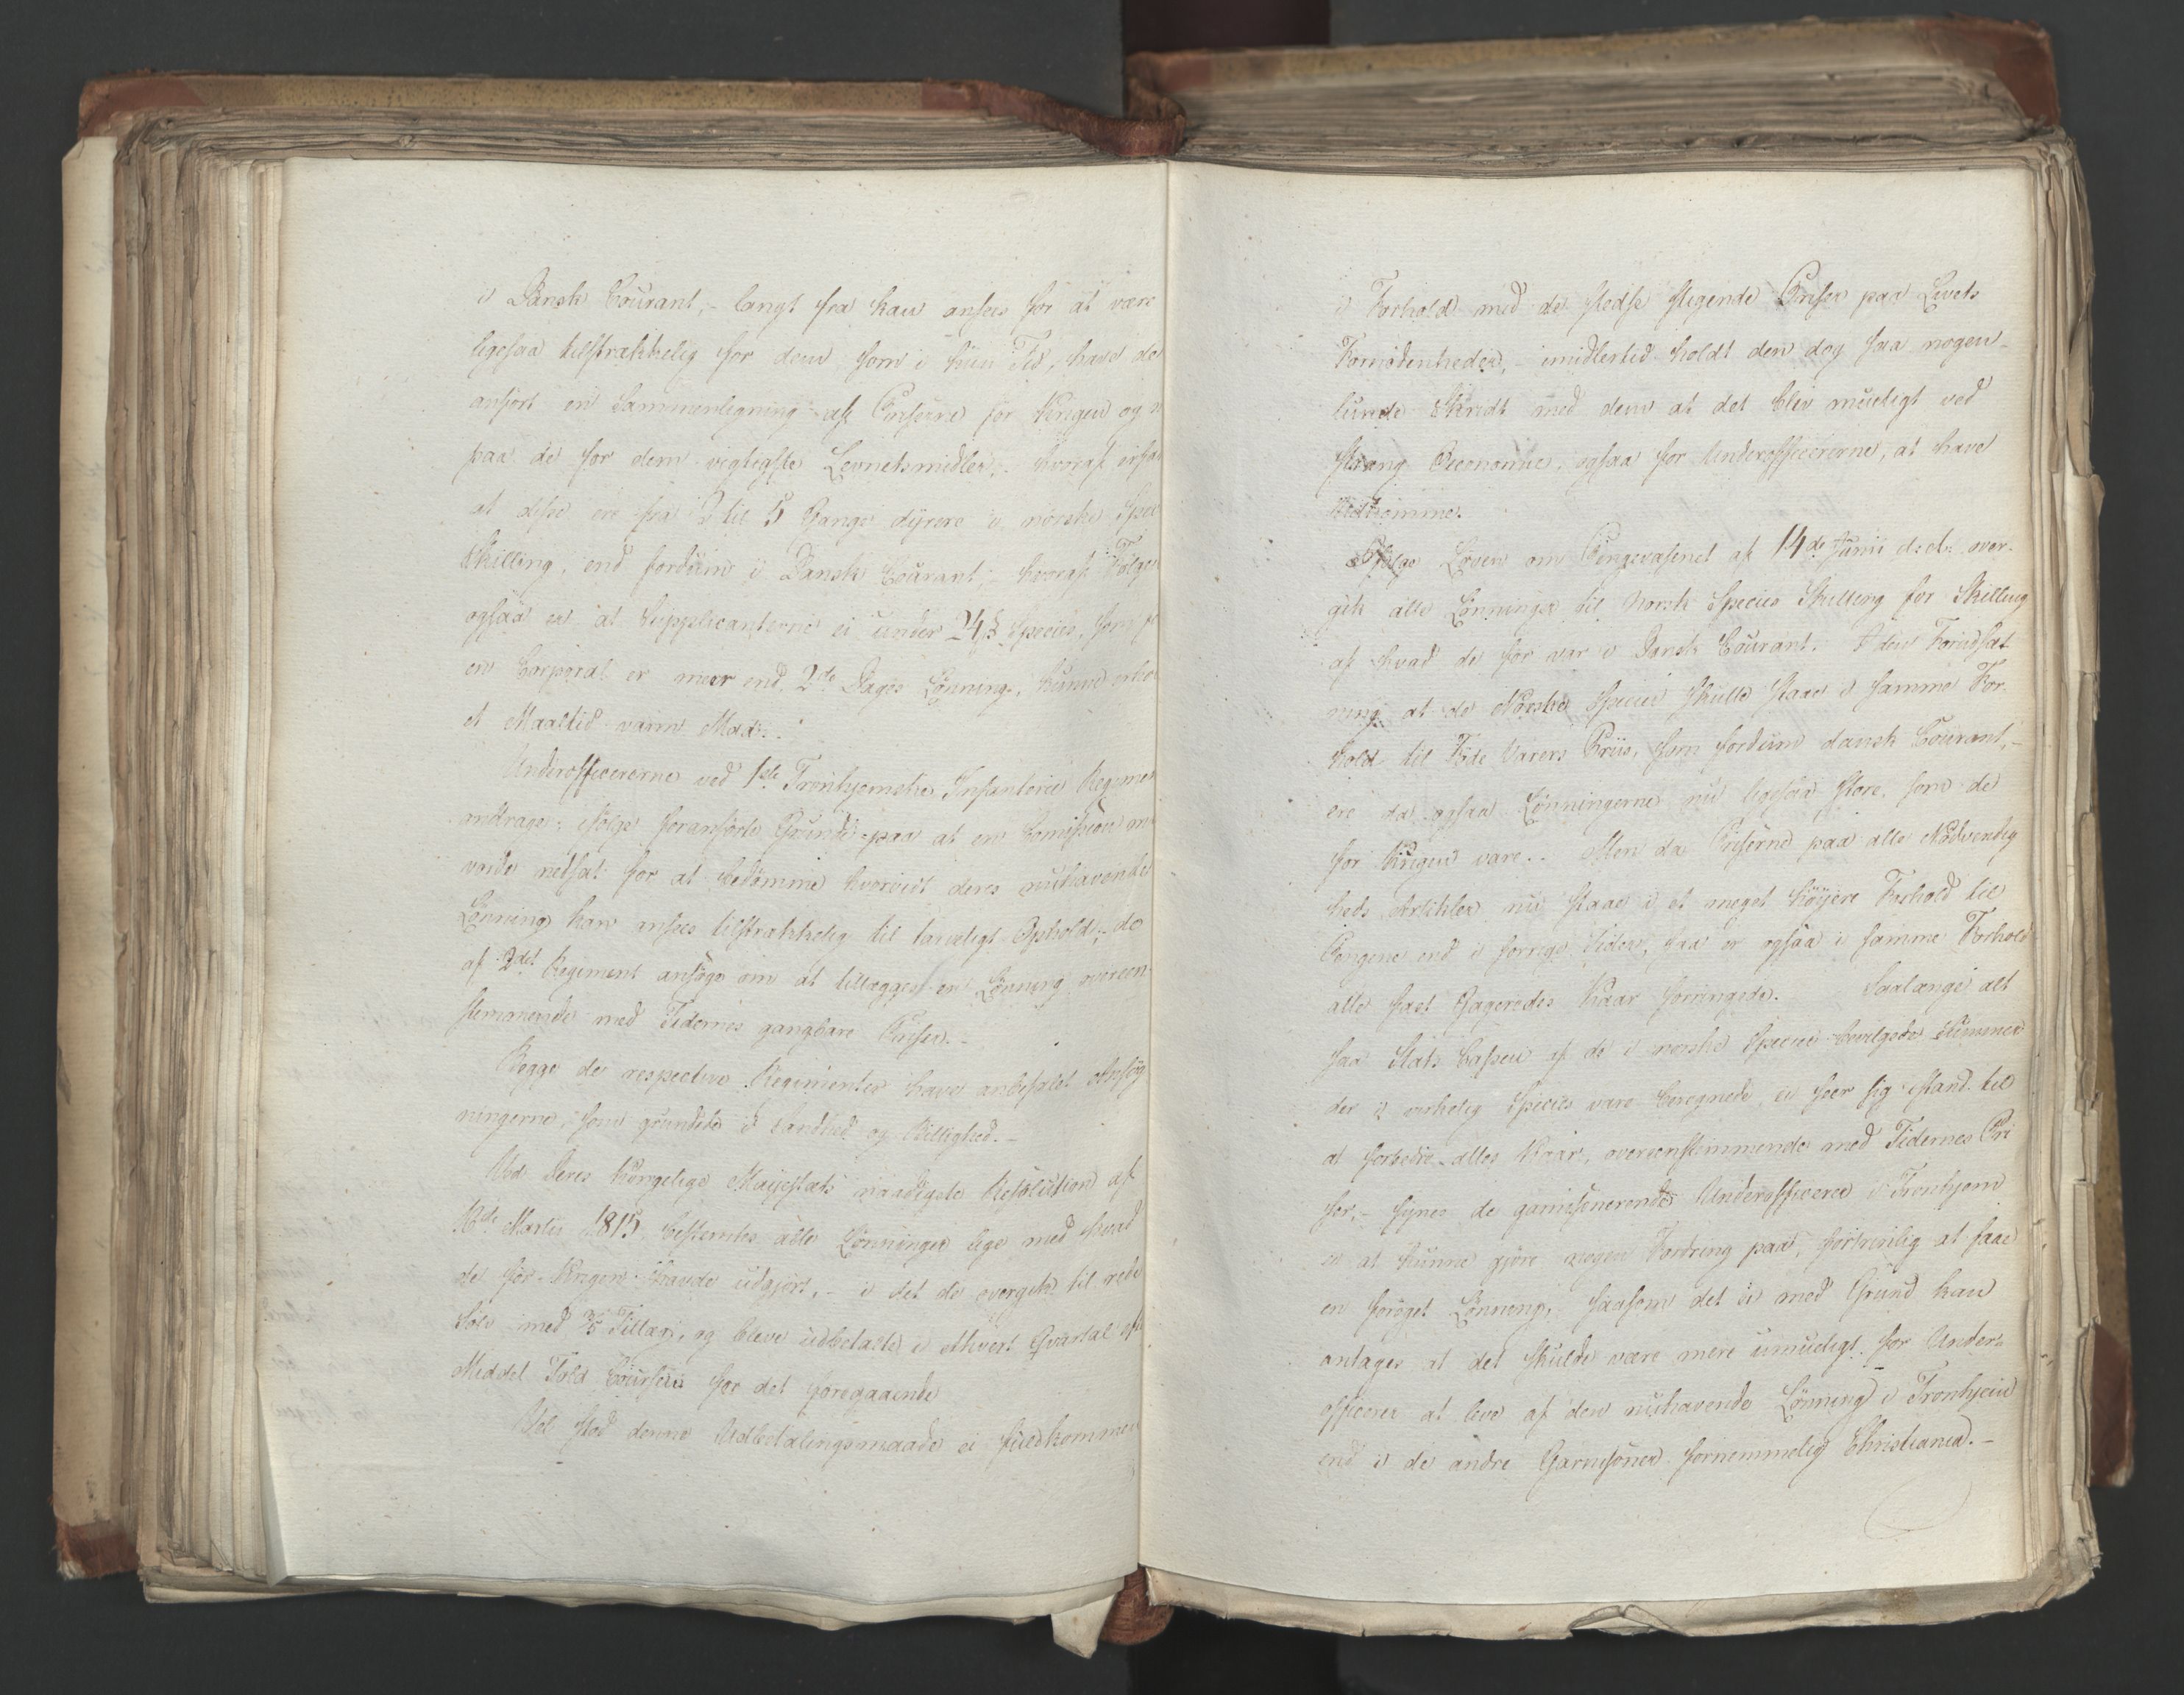 i Dansk Courant, - langt fra kan ansees for at være
ligesaa tilstrækkelig for dem som i hiin Tid, have de
anført en Sammenligning af Priserne før Krigen og n
paa de for dem vigtigste Levnetsmidler, hvoraf erfa
at disse ere fra 2 til 5 Gange dÿrere i norske Spe
Skilling, end fordum i Dansk Courant; - hvoraf Følge
ogsaa er at Supplicanterne ei under 24 ß Species, som f
en Corporal er meer end 2de Dages Lønning, kunne erh
et Maaltid varm Mad.
Underofficererne ved 1ste Tronhjemske Infanterie Regimen
andrage ifølge foranførte Grunde paa at en Comission m
vorde nedsat for at bedømme hvorvidt deres nuhavende
Lønning kan ansees tilstrækkelig til tarveligt Ophold; de
af 2det Regiment ansøge om at tillægges en Lønning overeen-
stemmende med Tidernes gangbare Priser. -
Begge de respective Regimenter have anbefalet Ansøg
ningerne, som grundede i Sandhed og Billighed. -
Ved Deres Kongelige Mayestæts naadigste Resolution af
Martii 1815 bestemtes alle Lønninger lige med hvad
de før Krigen havde udgjort, - i det de overgik til rede
Sølv med 3/5 Tillæg, og bleve udbetalte i ethvert Qvartal eft
Middel Told Coursen for det foregaaende
Vel stod denne Udbetalingsmaade ei fuldkommen
i Forhold med de stedse stigende Priser paa Livets
Fornødenheder, - imidlertid holdt den dog saa nogen-
lunde Skridt med dem at det blev mueligt ved
streng Oeconomie, ogsaa for Underofficererne, at have
Udkomme.
Ifølge Loven om Pengevæsenet af 14de Junii d: A: over-
gik alle Lønninger til Norsk Species Skilling for Skilling
af hvad de før var i Dansk Courant. I den Forudsæt
ning at de Norske Species skulle staae i samme For-
hold til Føde Varers Priis, som fordum dansk Courant, -
ere da ogsaa Lønningerne nu ligesaa store som de
før Krigen vare. - Men da Priserne paa alle Nødvendig
heds Artikler nu staae i et meget høÿere Forhold til
Pengene end i forrige Tider, saa er ogsaa i samme Forhold
alle fast Gageredes Kaar forringede. Saalænge alt
saa Stats Cassen af de i norske Species bevilgede Summer
der i virkelig Species vare beregnede, ei seer sig istand til
at forbedre alles Kaar, overeenstemmende med Tidernes Pri
ser, - synes de garnisonerende Underofficerer i Tronhjem
ei at kunne gjøre nogen Fordring paa, fortrinlig at faae
en forøget Lønning, saasom det ei med Grund kan
antages at det skulde være mere umueligt for Under-
officerer at leve af den nuhavende Lønning i Tronhjem
end i de andre Garnisoner fornemmelig Christiania. -